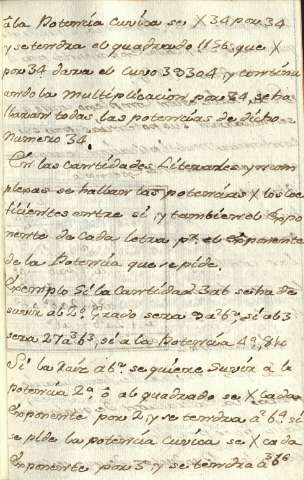 à la Potencia Cuvica se X 34 por 34
y se tendra el quadrado 1156, que X
por 34 dara el Cuvo 39304, y continu
ando la multiplicacion por 34, se ha
llaran todas las potencias de dicho
numero 34.
En las Cantidades Literales y incom
plexas se hallan las potencias X los coe
ficientes entre si, y tambien el Expo
nente de cada letra pr. el Exponente
de la Potencia que se pide.
Exemplo Si la Cantidad 3ab se ha de
suvir à 2º grado sera 9a²b², si ab 3
sera 27a³b³, si à la Potencia 4ª, 81
Si la raiz ab² se quiere suvir à la
potencia 2ª, ó al quadrado se X cada
Exponente por 2, y se tendra a²b⁴ si
se pide la potencia Cuvica se X cada
Exponente por 3º y se tendra a³b⁶